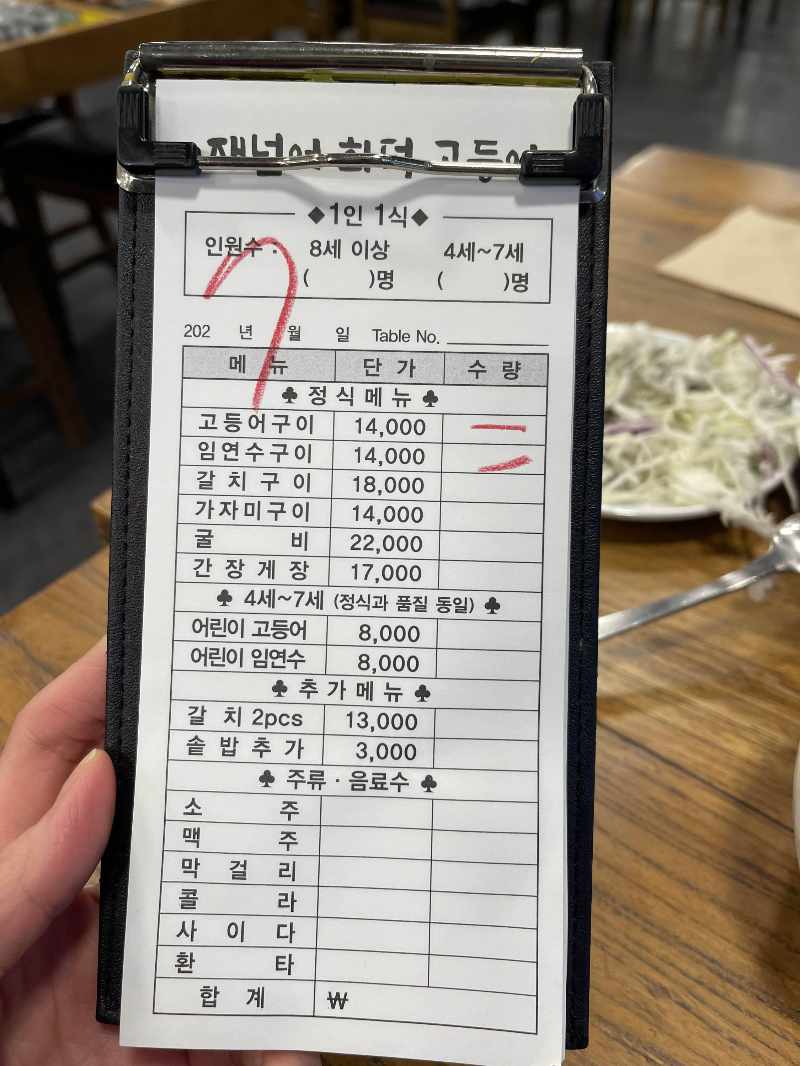 재너머 화덕 고등어
◆1인 1식◆
인원수 : 8세 이상 4세~7세
( )명 ( )명
7
202 년 월 일 Table No.
메 뉴 단 가 수 량
♣ 정 식 메 뉴 ♣
고등어구이 14,000 一
임연수구이 14,000 一
갈 치 구 이 18,000
가자미구이 14,000
굴 비 22,000
간 장 게 장 17,000
♣ 4세~7세 (정식과 품질 동일) ♣
어린이 고등어 8,000
어린이 임연수 8,000
♣ 추 가 메 뉴 ♣
갈 치 2pcs 13,000
솥 밥 추 가 3,000
♣ 주류 · 음료수 ♣
소 주
맥 주
막 걸 리
콜 라
사 이 다
환 타
합 계 ₩